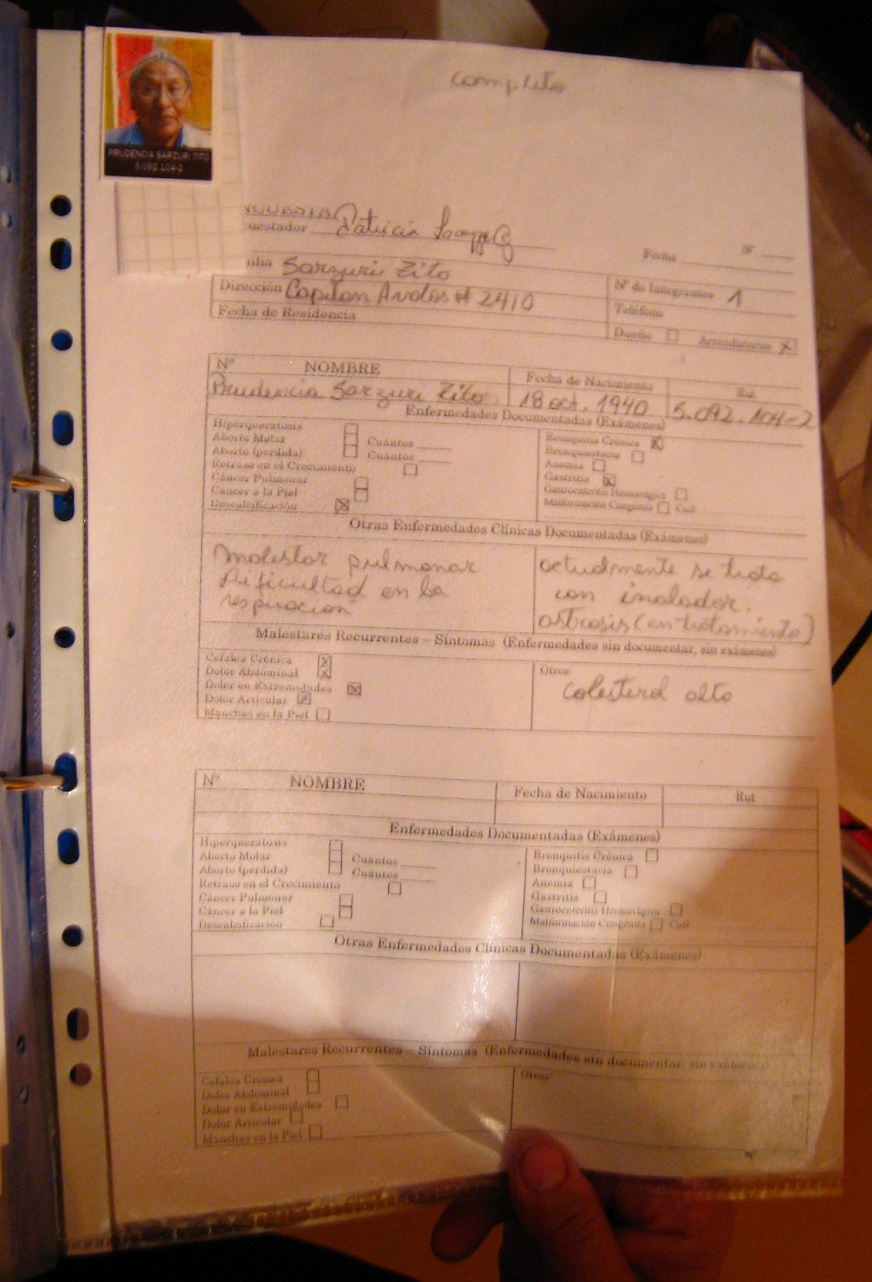 completo
PRUDENCIA SARZURI TITO
5.092.104-2
Patricia
Fecha Nº
Sarzuri Tito
Nº de Integrantes 1
Dirección Capitan Avalos # 2410
Teléfono
Fecha de Residencia
Dueño Arrendatario X
Nº NOMBRE Fecha de Nacimiento Rut
Prudencia Sarzuri Tito 18 oct. 1940 5.092.104-2
Enfermedades Documentadas (Exámenes)
Hiperqueratosis
Aborto Molar Cuántos
Aborto (perdida) Cuántos
Retraso en el Crecimiento
Cáncer Pulmonar
Cáncer a la Piel
Descalcificación X
Bronquitis Crónica X
Bronquiestacia
Anemia
Gastritis X
Gastroenteritis Hemorrágica
Malformación Congénita Cuál
Otras Enfermedades Clínicas Documentadas (Exámenes)
molestar pulmonar
dificultad en la
respiración
actualmente se trata
con inalador.
astrosis (en tratamiento)
Malestares Recurrentes – Síntomas (Enfermedades sin documentar, sin exámenes)
Cefalea Crónica X
Dolor Abdominal X
Dolor en Extremidades X
Dolor Articular X
Manchas en la Piel
Otros:
Colesterol alto
Nº NOMBRE Fecha de Nacimiento Rut
Enfermedades Documentadas (Exámenes)
Hiperqueratosis
Aborto Molar Cuántos
Aborto (perdida) Cuántos
Retraso en el Crecimiento
Cáncer Pulmonar
Cáncer a la Piel
Descalcificación
Bronquitis Crónica
Bronquiestacia
Anemia
Gastritis
Gastroenteritis Hemorrágica
Malformación Congénita Cuál
Otras Enfermedades Clínicas Documentadas (Exámenes)
Malestares Recurrentes – Síntomas (Enfermedades sin documentar, sin exámenes)
Cefalea Crónica
Dolor Abdominal
Dolor en Extremidades
Dolor Articular
Manchas en la Piel
Otros: